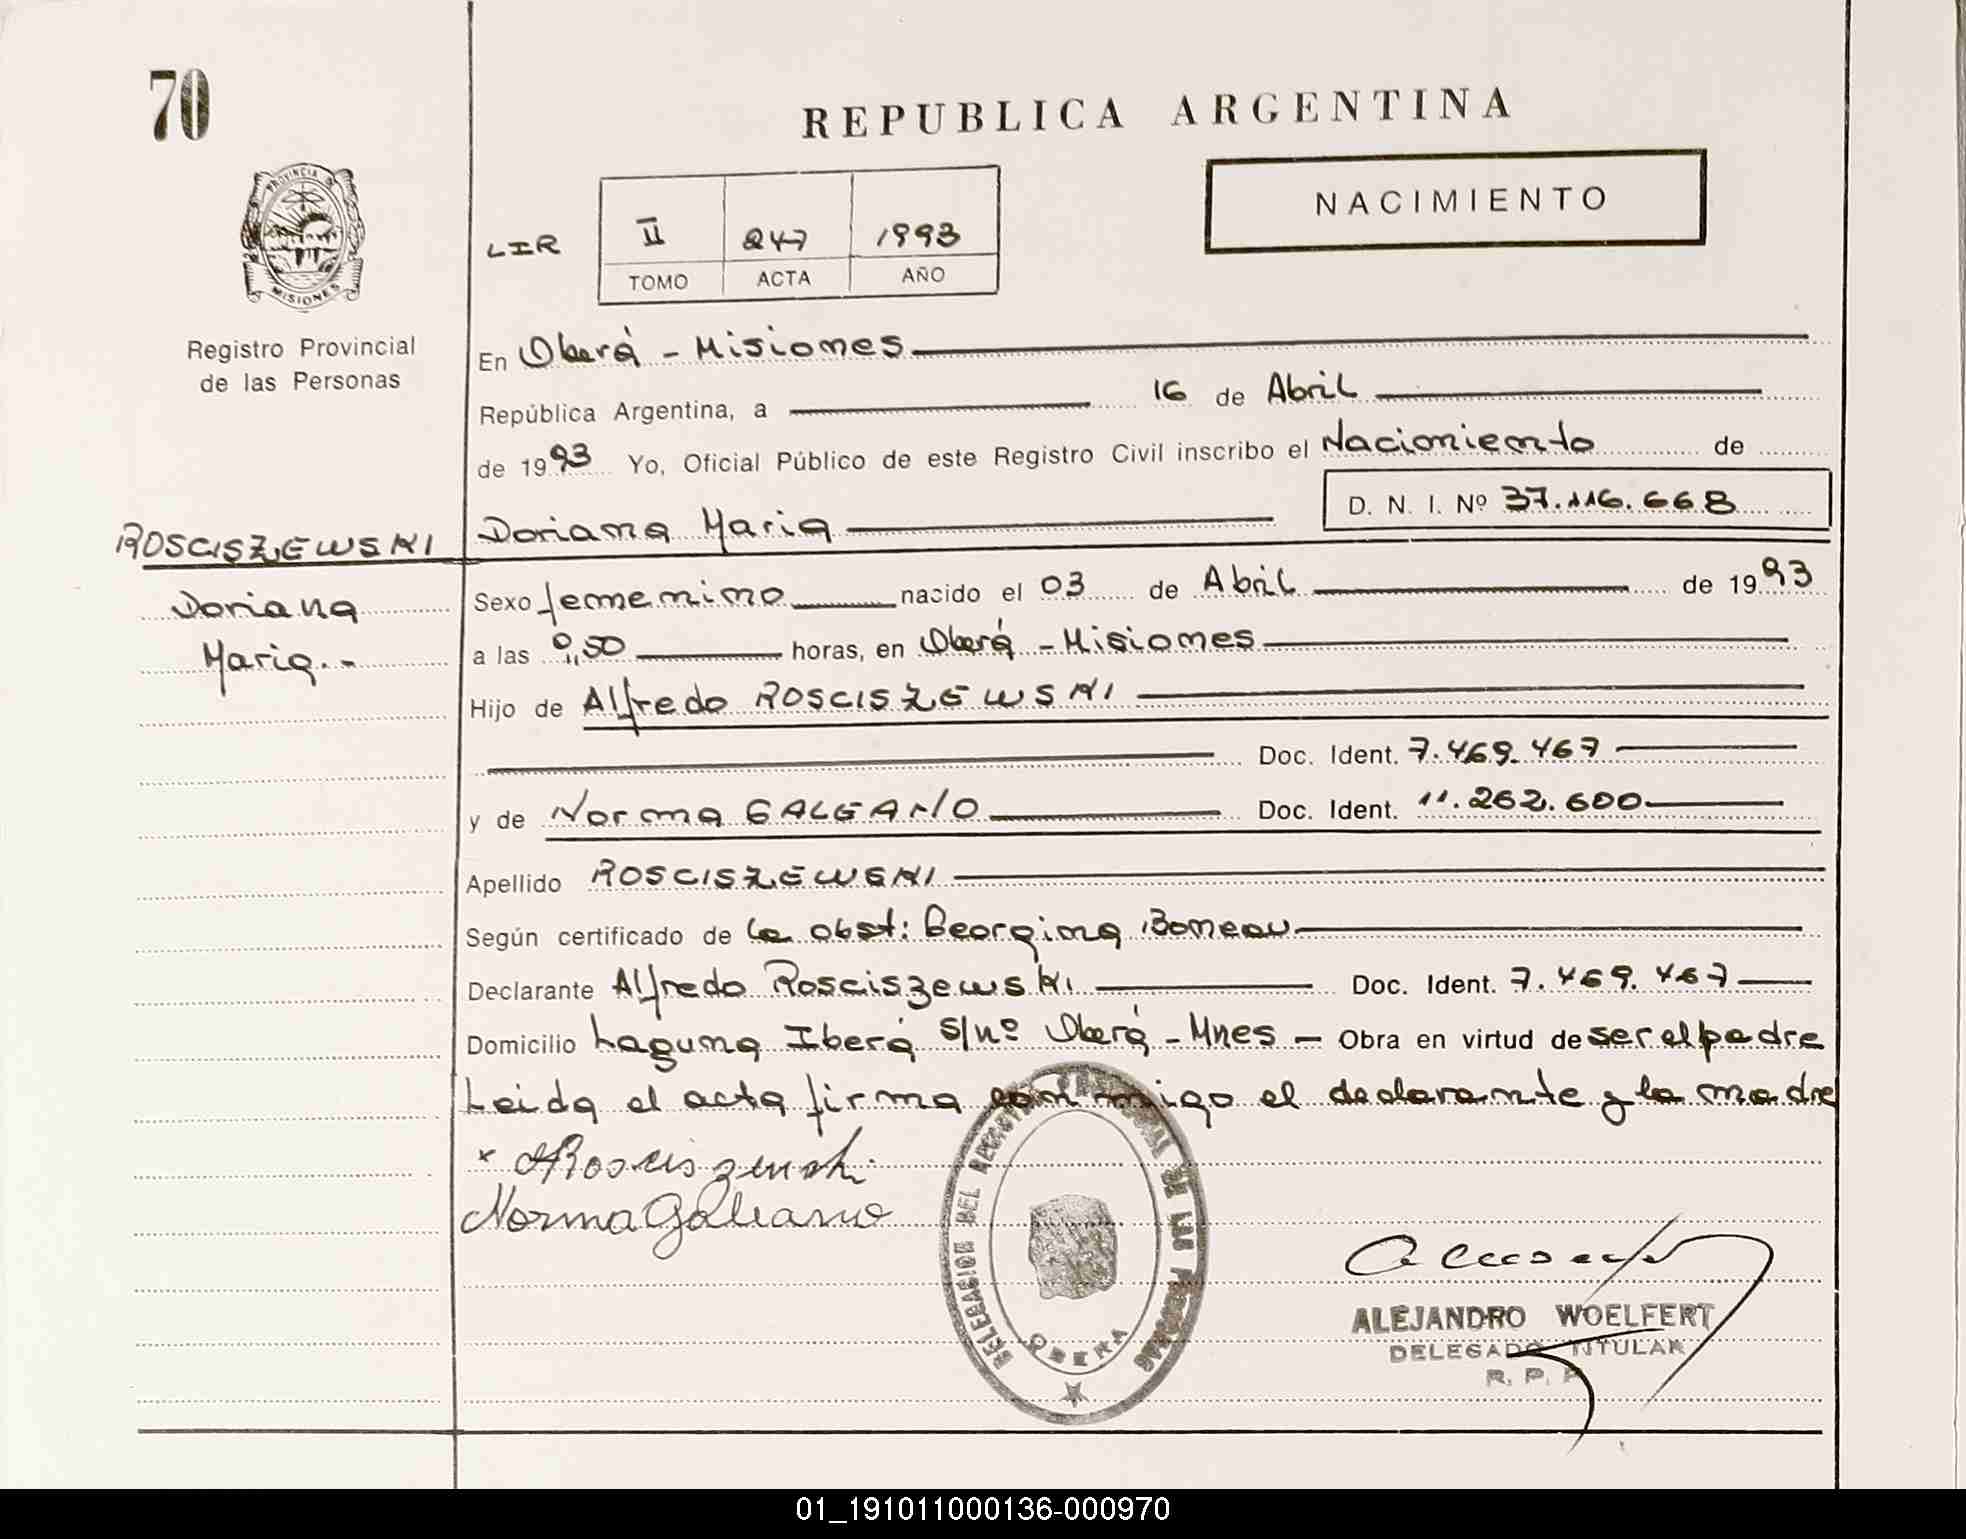 70
REPUBLICA ARGENTINA
PROVINCIA D
MISIONES
Registro Provincial
de las Personas
NACIMIENTO
LIR II 247 1993
TOMO ACTA AÑO
En Oberá - Misiones
República Argentina, a 16 de Abril
de 1993 Yo, Oficial Público de este Registro Civil inscribo el Nacimiento de
D. N. I. Nº 37.116.668
ROSCISZEWSKI Doriana Maria
Doriana
Maria.-
Sexo femenino nacido el 03 de Abril de 1993
a las 9,50 horas, en Oberá - Misiones
Hijo de Alfredo ROSCISZEWSKI
Doc. Ident. 7.469.467
y de Norma GALEANO Doc. Ident. 11.262.600
Apellido ROSCISZEWSKI
Según certificado de la obst: Georgina Boneau
Declarante Alfredo Rosciszewski Doc. Ident. 7.469.467
Domicilio Laguna Iberá s/nº Oberá - Mnes - Obra en virtud de ser el padre
Leida el acta firma conmigo el declarante y la madre
x ARosciszewski
Norma Galeano
DELEGACION DEL REGISTRO PROVINCIAL DE LAS PERSONAS
OBERA
ALEJANDRO WOELFERT
DELEGADO TITULAR
R. P. P
01_191011000136-000970